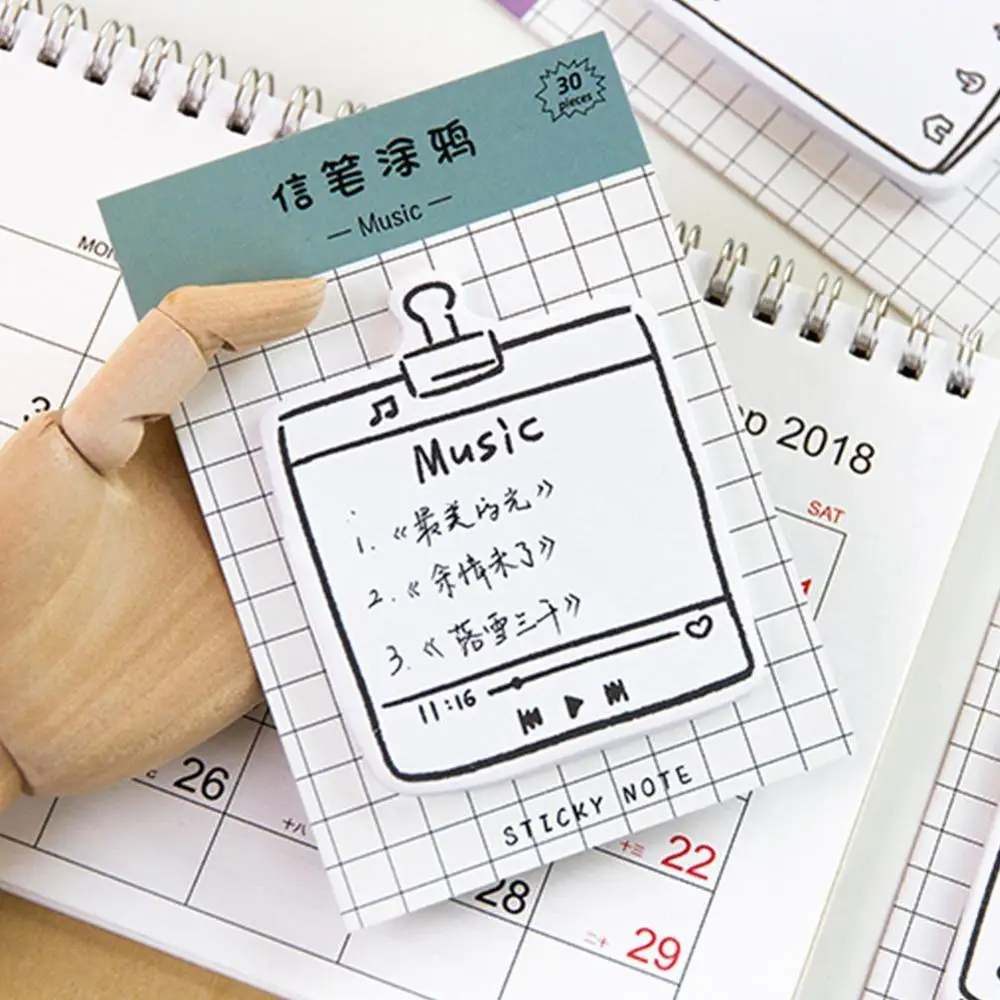 30
pieces
信笔涂鸦
— Music —
Music
1.《最美的光》
2.《余情未了》
3.《落雪三千》
11:16
STICKY NOTE
2018
SAT
3
26
十八
28
十三 22
二十 29